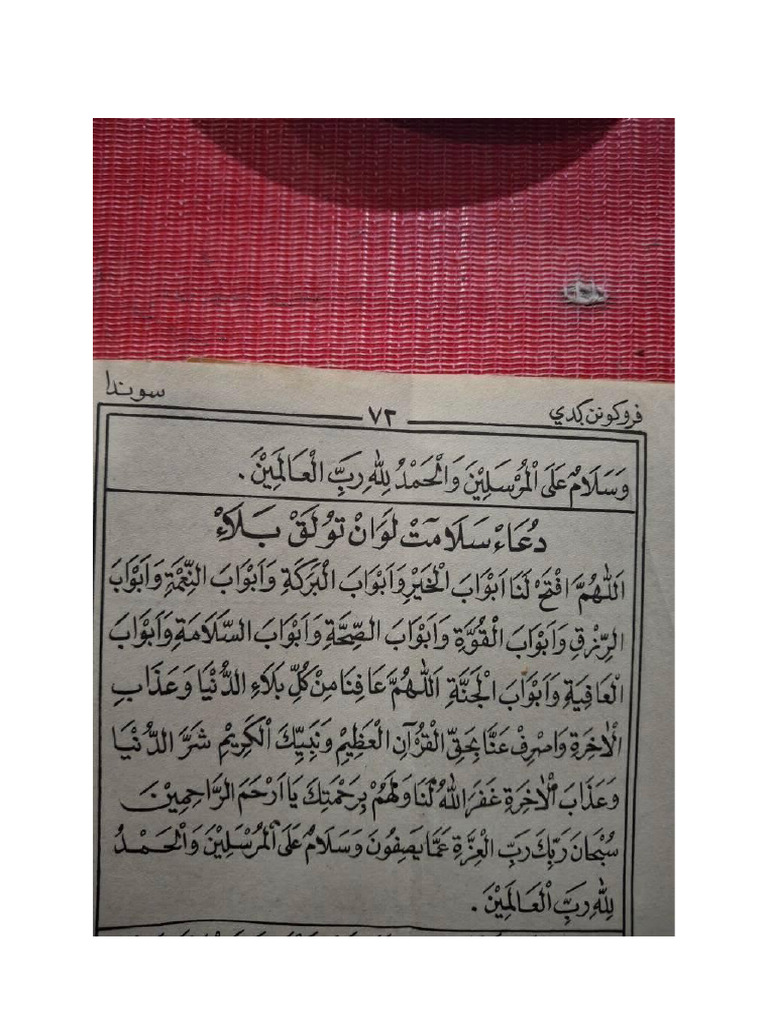 فروكونن ݢدي ٧٢ سوندا
وَسَلَامٌ عَلَى الْمُرْسَلِيْنَ وَالْحَمْدُ لِلّٰهِ رَبِّ الْعَالَمِيْنَ.
دُعَاءْ سَلَامَتْ لَوَانْ تَوْلَقْ بَلَاءْ
اَللّٰهُمَّ افْتَحْ لَنَا اَبْوَابَ الْخَيْرِ وَاَبْوَابَ الْبَرَكَةِ وَاَبْوَابَ النِّعْمَةِ وَاَبْوَابَ
الرِّزْقِ وَاَبْوَابَ الْقُوَّةِ وَاَبْوَابَ الصِّحَّةِ وَاَبْوَابَ السَّلَامَةِ وَاَبْوَابَ
الْعَافِيَةِ وَاَبْوَابَ الْجَنَّةِ اَللّٰهُمَّ عَافِنَا مِنْ كُلِّ بَلَاءِ الدُّنْيَا وَعَذَابِ
الْاٰخِرَةِ وَاصْرِفْ عَنَّا بِحَقِّ الْقُرْآنِ الْعَظِيْمِ وَنَبِيِّكَ الْكَرِيْمِ شَرَّ الدُّنْيَا
وَعَذَابَ الْاٰخِرَةِ غَفَرَ اللّٰهُ لَنَا وَلَهُمْ بِرَحْمَتِكَ يَا اَرْحَمَ الرَّاحِمِيْنَ
سُبْحَانَ رَبِّكَ رَبِّ الْعِزَّةِ عَمَّا يَصِفُونَ وَسَلَامٌ عَلَى الْمُرْسَلِيْنَ وَالْحَمْدُ
لِلّٰهِ رَبِّ الْعَالَمِيْنَ.